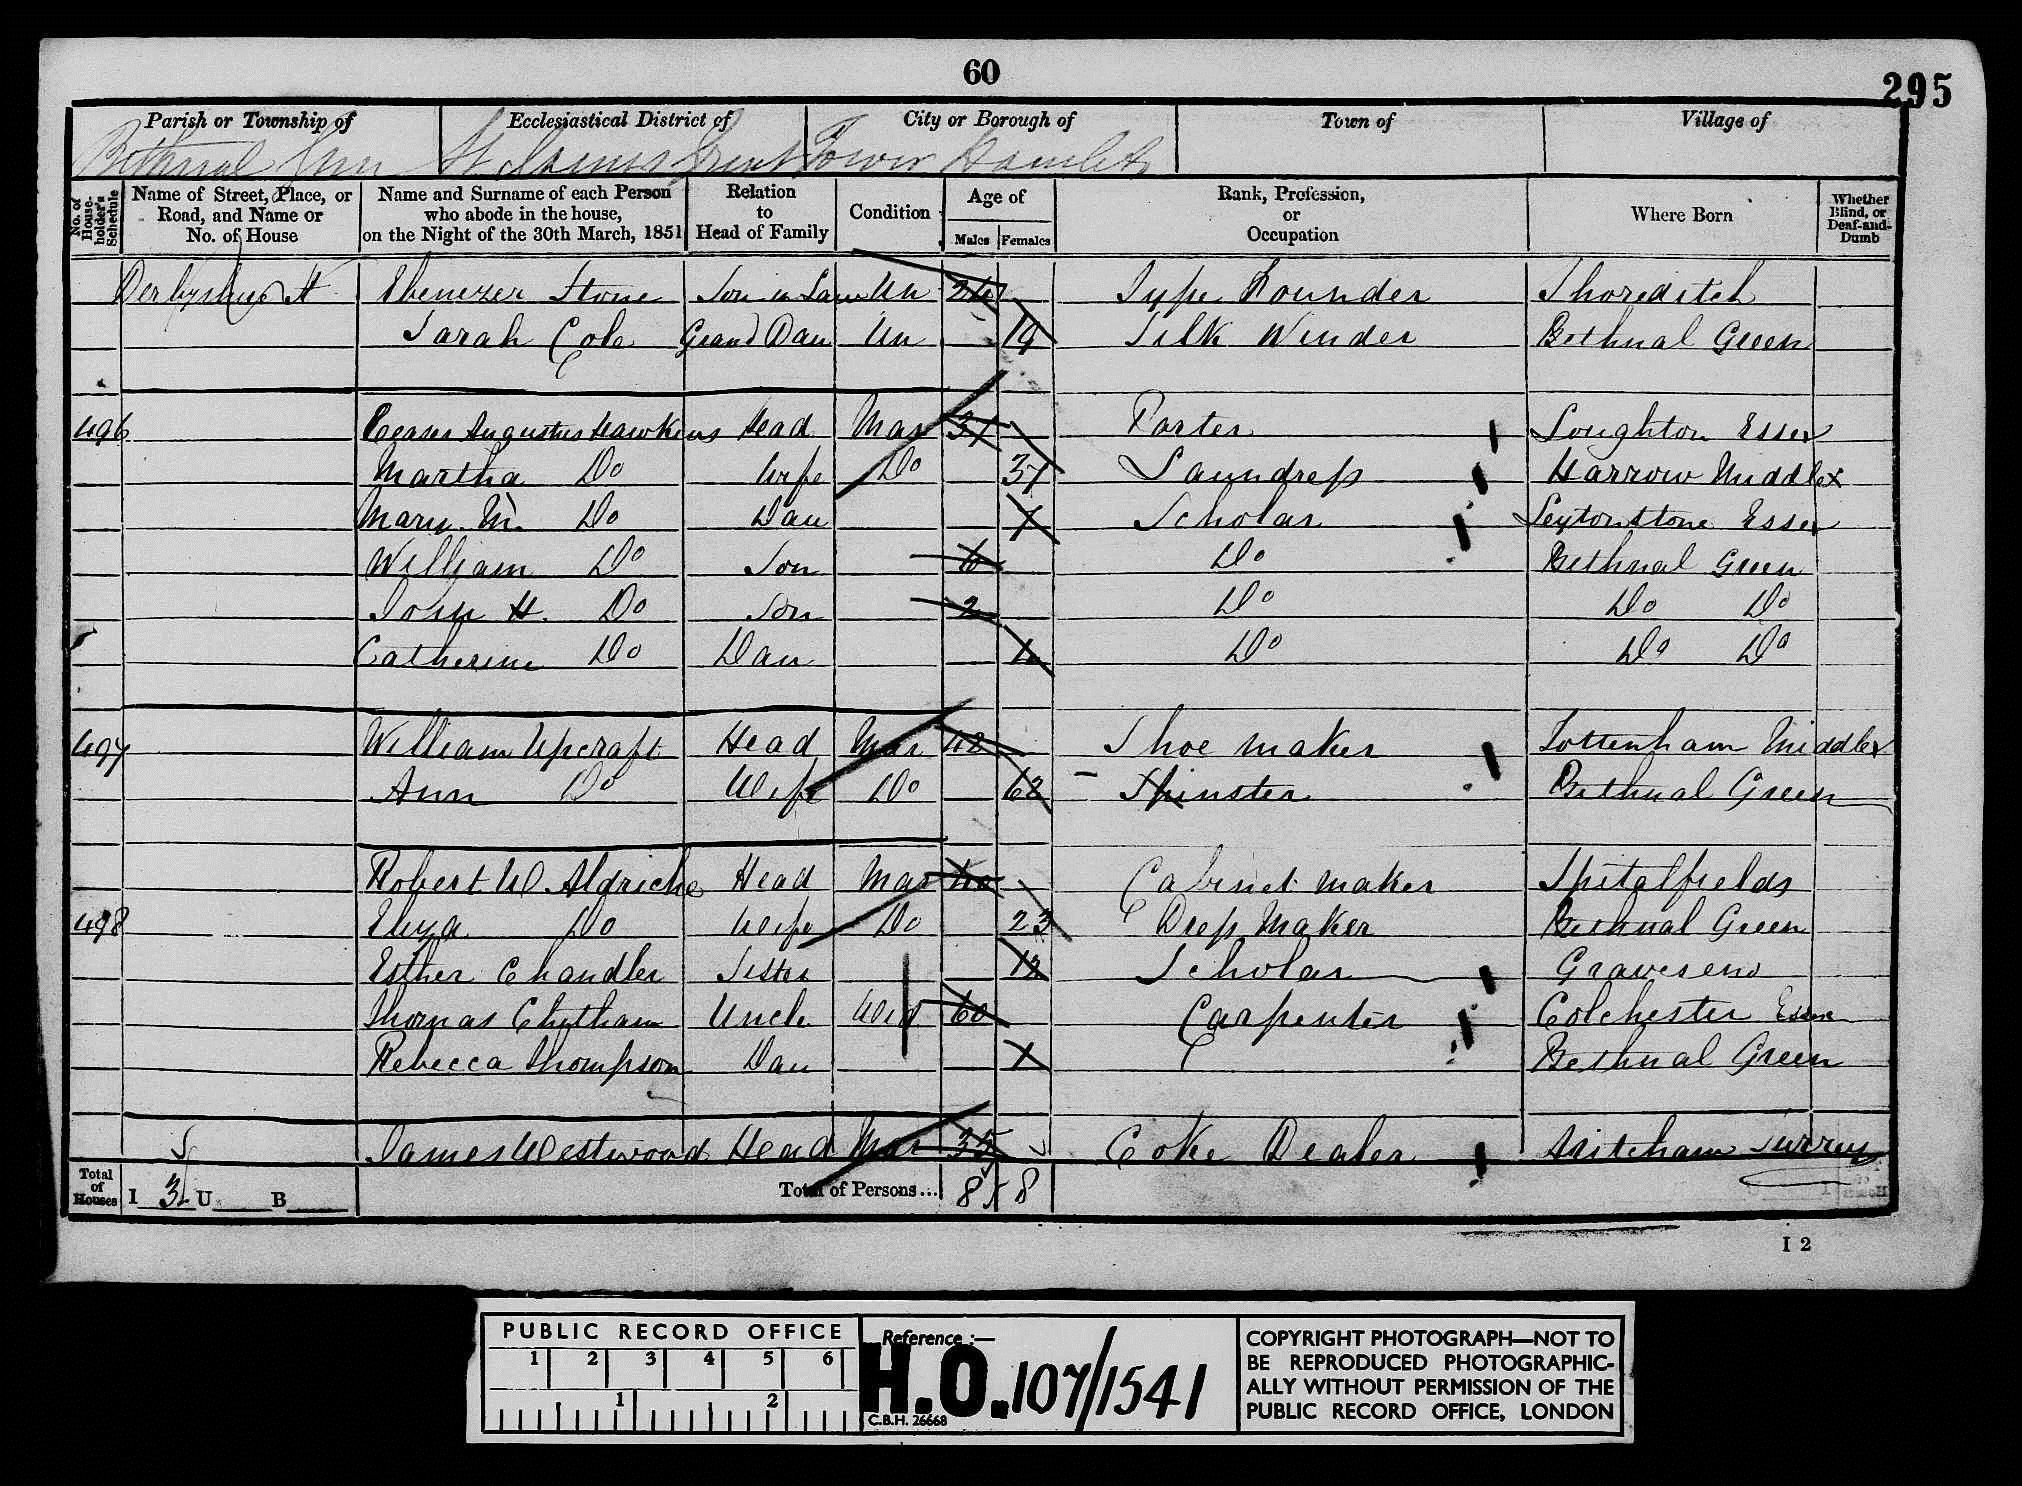 60
295
Parish or Township of Ecclesiastical District of City or Borough of Town of Village of
Bethnal Grn St James Great Tower Hamlets
No. of House-holder's Schedule
Name of Street, Place, or Road, and Name or No. of House
Name and Surname of each Person who abode in the house, on the Night of the 30th March, 1851
Relation to Head of Family
Condition
Age of
Males Females
Rank, Profession, or Occupation
Where Born
Whether Blind, or Deaf-and-Dumb
Derbyshire St Ebenezer Stone Son in Law Un 24 Type Founder Shoreditch
Sarah Cole Grand Dau Un 19 Silk Winder Bethnal Green
496 Ceaser Augustus Hawkins Head Mar 31 Porter Loughton Essex
Martha Do Wife Do 37 Laundress Harrow Middlex
Mary M. Do Dau 7 Scholar Leytonstone Essex
William Do Son 6 Do Bethnal Green
John H. Do Son 2 Do Do Do
Catherine Do Dau 4 Do Do Do
497 William Upcraft Head Mar 42 Shoe maker Tottenham Middlex
Ann Do Wife Do 62 Spinster Bethnal Green
Robert W Aldriche Head Mar 40 Cabinet maker Spitalfields
498 Eliza Do Wife Do 23 Dress Maker Bethnal Green
Esther Chandler Sister 12 Scholar Gravesend
Thomas Chytham Uncle Wid 60 Carpenter Colchester Essex
Rebecca Thompson Dau Bethnal Green
James Westwood Head Mar 35 Coke Dealer Mitcham Surrey
Total of Houses I 3 U B Total of Persons... 8 8
I 2
PUBLIC RECORD OFFICE
1 2 3 4 5 6
1 2
Reference :—
H.O. 107/1541
C.B.H. 26668
COPYRIGHT PHOTOGRAPH—NOT TO
BE REPRODUCED PHOTOGRAPHIC-
ALLY WITHOUT PERMISSION OF THE
PUBLIC RECORD OFFICE, LONDON